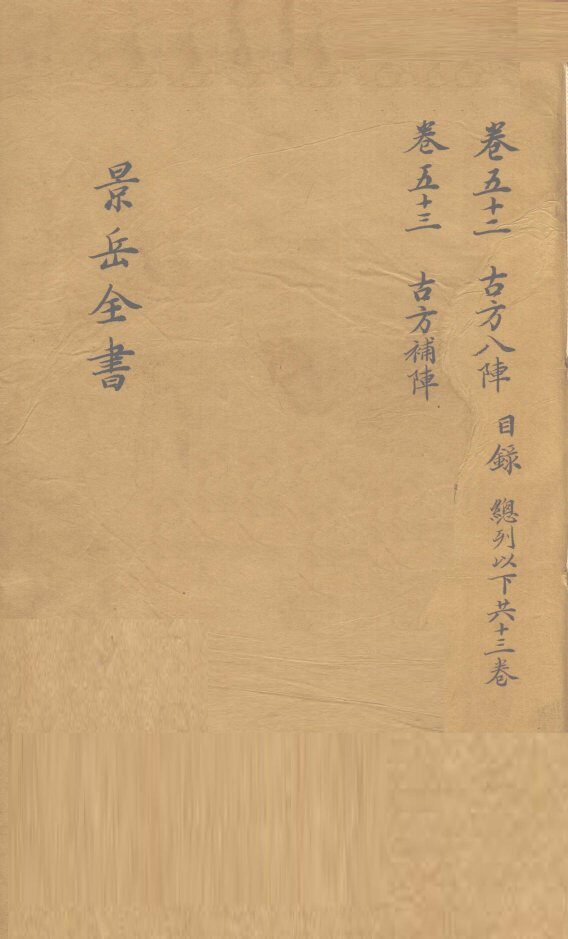 卷五十二 古方八陣 目錄 總列以下共十三卷
卷五十三 古方補陣
景岳全書